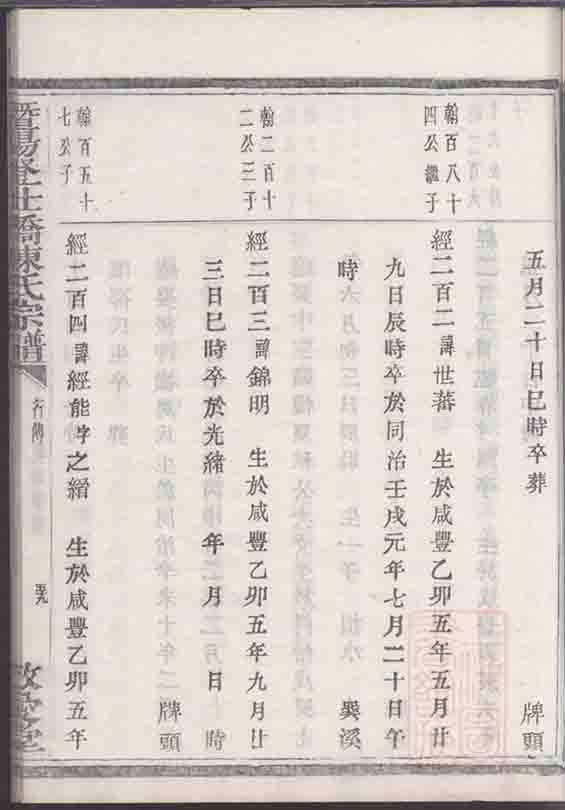 五月二十日巳時卒葬 牌頭
翰百八十四公繼子
經二百二諱世蕃 生於咸豐乙卯五年五月廿
九日辰時卒於同治壬戌元年七月二十日午
時 巽溪
翰二百十二公三子
經二百三諱錦明 生於咸豐乙卯五年九月廿
三日巳時卒於光緒 年 月 日 時
牌頭
翰百五十七公子
經二百四諱經能字之縉 生於咸豐乙卯五年
暨陽 橋陳氏宗譜
行傳